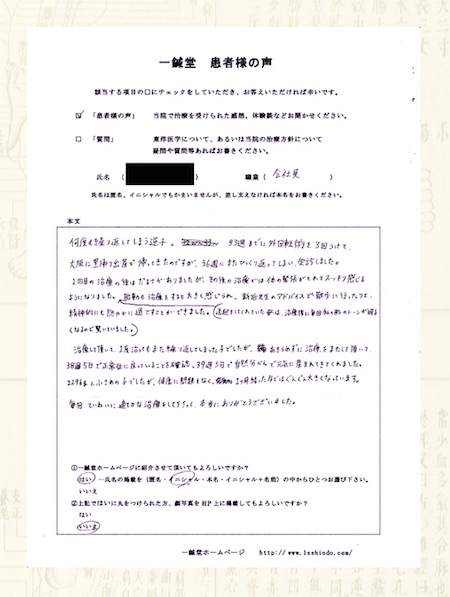 一鍼堂 患者様の声
該当する項目の□にチェックをしていただき、お答えいただければ幸いです。
☑ 「患者様の声」 当院で治療を受けられた感想、体験談などお聞かせください。
□ 「質問」 東洋医学について、あるいは当院の治療方針について
疑問や質問等あればお書きください。
氏名 ( ) 職業 ( 会社員 )
氏名は匿名、イニシャルでもかまいませんが、差し支えなければ本名をお書きください。
本文
何度も繰り返してしまう逆子。 33週までに外回転術を3回うけて、
大阪に里帰り出産が 帰ってきたのですが、36週にまたひっくり返ってしまい、来診しました。
1回目の治療の後はだるさがありましたが、その後の治療では体の緊張がとれてスッキリ感じる
ようになりました。 胎動も治療をすると大きく感じられ、新治先生のアドバイスで散歩に行ったりして、
精神的にも穏やかに過ごすことができました。
くなるので驚いていました。
治療して頂いて、1度治ってもまた繰り返してしまった子でしたが、あきらめずに治療をまたして頂いて、
38週5日で正常位に戻っていることを確認、39週3日で自然分べんで元気に産まれてきてくれました。
2296gと小さめの子でしたが、健康に問題もなく、1ヶ月経った今ではぐんぐん大きくなっています。
毎日ていねいに適切な治療をして下さって、本当にありがとうございました。
①一鍼堂ホームページに紹介させて頂いてもよろしいですか？
はい →氏名の掲載を（匿名・イニシャル・本名・イニシャル＋名前）の中からひとつお選び下さい。
いいえ
②上記ではいに丸をつけられた方、顔写真をHP上に掲載してもよろしいですか？
はい
いいえ
一鍼堂ホームページ http://www.1sshindo.com/